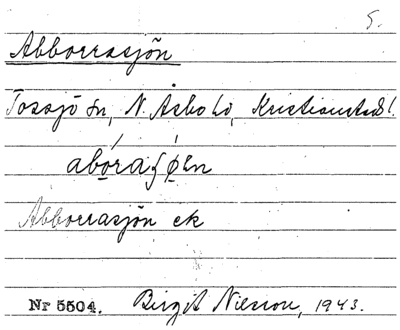 5.
Abborrasjön
Tossjö sn, N. Åsbo hd, Kristianstads l.
abo̱raʃø̱en
Abborrasjön ek
Nr 5504. Birgit Nilsson, 1943.